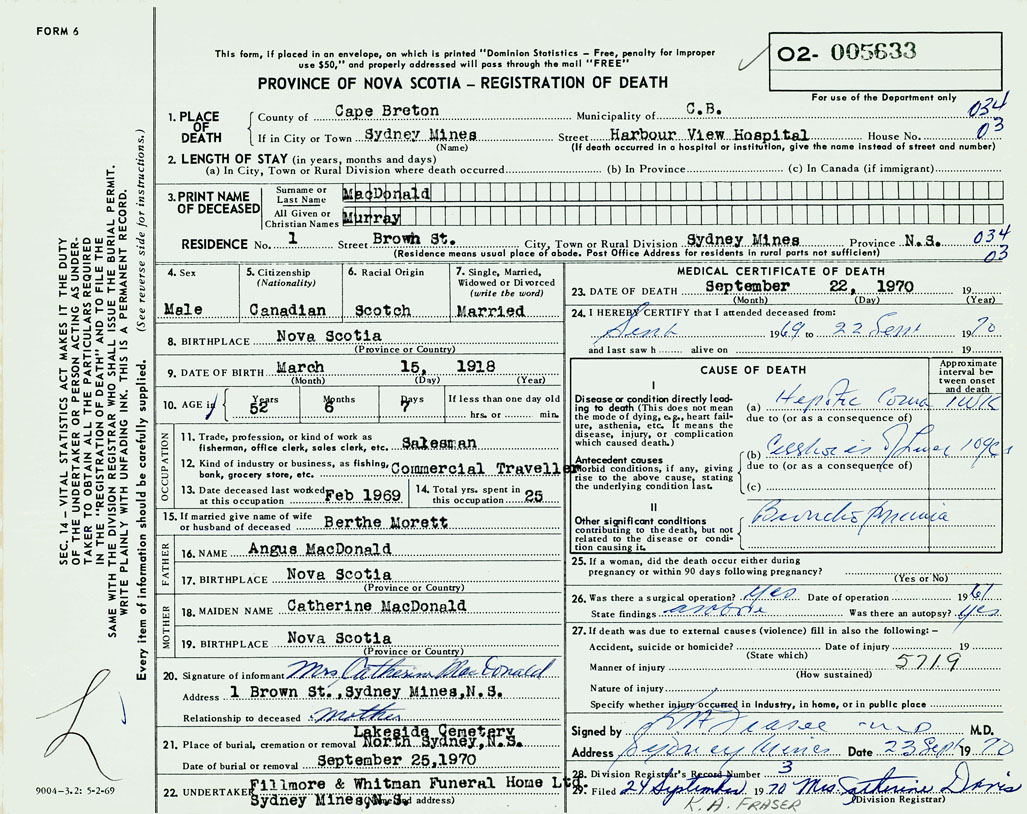 FORM 6
This form, if placed in an envelope, on which is printed "Dominion Statistics – Free, penalty for improper
use $50," and properly addressed will pass through the mail "FREE"
02- 005633
PROVINCE OF NOVA SCOTIA – REGISTRATION OF DEATH
For use of the Department only
1. PLACE OF DEATH
County of Cape Breton Municipality of C.B. 034
If in City or Town Sydney Mines Street Harbour View Hospital House No. 03
(Name) (If death occurred in a hospital or institution, give the name instead of street and number)
2. LENGTH OF STAY (in years, months and days)
(a) In City, Town or Rural Division where death occurred (b) In Province (c) In Canada (if immigrant)
3. PRINT NAME OF DECEASED
Surname or Last Name MacDonald
All Given or Christian Names Murray
RESIDENCE No. 1 Street Brown St. City, Town or Rural Division Sydney Mines Province N.S. 034
(Residence means usual place of abode. Post Office Address for residents in rural parts not sufficient) 03
4. Sex
Male
5. Citizenship
(Nationality)
Canadian
6. Racial Origin
Scotch
7. Single, Married,
Widowed or Divorced
(write the word)
Married
8. BIRTHPLACE Nova Scotia
(Province or Country)
9. DATE OF BIRTH March 15, 1918
(Month) (Day) (Year)
10. AGE in Years 52 Months 6 Days 7 If less than one day
hrs. or min.
OCCUPATION
11. Trade, profession, or kind of work as
fisherman, office clerk, sales clerk, etc. Salesman
12. Kind of industry or business, as fishing,
bank, grocery store, etc. Commercial Traveller
13. Date deceased last worked
at this occupation Feb 1969
14. Total yrs. spent in
this occupation 25
15. If married give name of wife
or husband of deceased Berthe Morett
FATHER
16. NAME Angus MacDonald
17. BIRTHPLACE Nova Scotia
(Province or Country)
MOTHER
18. MAIDEN NAME Catherine MacDonald
19. BIRTHPLACE Nova Scotia
(Province or Country)
20. Signature of informant Mrs Catherine MacDonald
Address 1 Brown St., Sydney Mines, N.S.
Relationship to deceased Mother
Lakeside Cemetery
21. Place of burial, cremation or removal North Sydney, N.S.
Date of burial or removal September 25, 1970
22. UNDERTAKER Fillmore & Whitman Funeral Home Ltd.
Sydney Mines, N.S. (Name and address)
MEDICAL CERTIFICATE OF DEATH
23. DATE OF DEATH September 22, 1970 19
(Month) (Day) (Year)
24. I HEREBY CERTIFY that I attended deceased from:
Sept 1969 to 22 Sept 1970
and last saw h alive on 19
CAUSE OF DEATH
Approximate interval between onset and death
I
Disease or condition directly leading to death (This does not mean the mode of dying, e.g., heart failure, asthenia, etc. It means the disease, injury, or complication which caused death.)
(a) Hepatic Coma 1 WK
due to (or as a consequence of)
Antecedent causes
Morbid conditions, if any, giving rise to the above cause, stating the underlying condition last.
(b) Cirrhosis of Liver 10 yrs
due to (or as a consequence of)
(c)
II
Other significant conditions
contributing to the death, but not related to the disease or condition causing it.
25. If a woman, did the death occur either during
pregnancy or within 90 days following pregnancy?
(Yes or No)
26. Was there a surgical operation? Yes Date of operation 1961
State findings as above Was there an autopsy? Yes
27. If death was due to external causes (violence) fill in also the following: –
Accident, suicide or homicide? Date of injury 19
(State which)
Manner of injury 571.9
(How sustained)
Nature of injury
Specify whether injury occurred in industry, in home, or in public place
Signed by K A Fraser MD M.D.
Address Sydney Mines Date 23 Sept 1970
28. Division Registrar's Record Number 3
29. Filed 24 September 1970 Mrs. Catherine Davis
K. A. FRASER (Division Registrar)
SEC. 14 – VITAL STATISTICS ACT MAKES IT THE DUTY
OF THE UNDERTAKER OR PERSON ACTING AS UNDER-
TAKER TO OBTAIN ALL THE PARTICULARS REQUIRED
IN THE "REGISTRATION OF DEATH" AND TO FILE THE
SAME WITH THE DIVISION REGISTRAR WHO SHALL ISSUE THE BURIAL PERMIT.
WRITE PLAINLY WITH UNFADING INK. THIS IS A PERMANENT RECORD.
Every item of information should be carefully supplied. (See reverse side for instructions.)
9004-3.2: 5-2-69